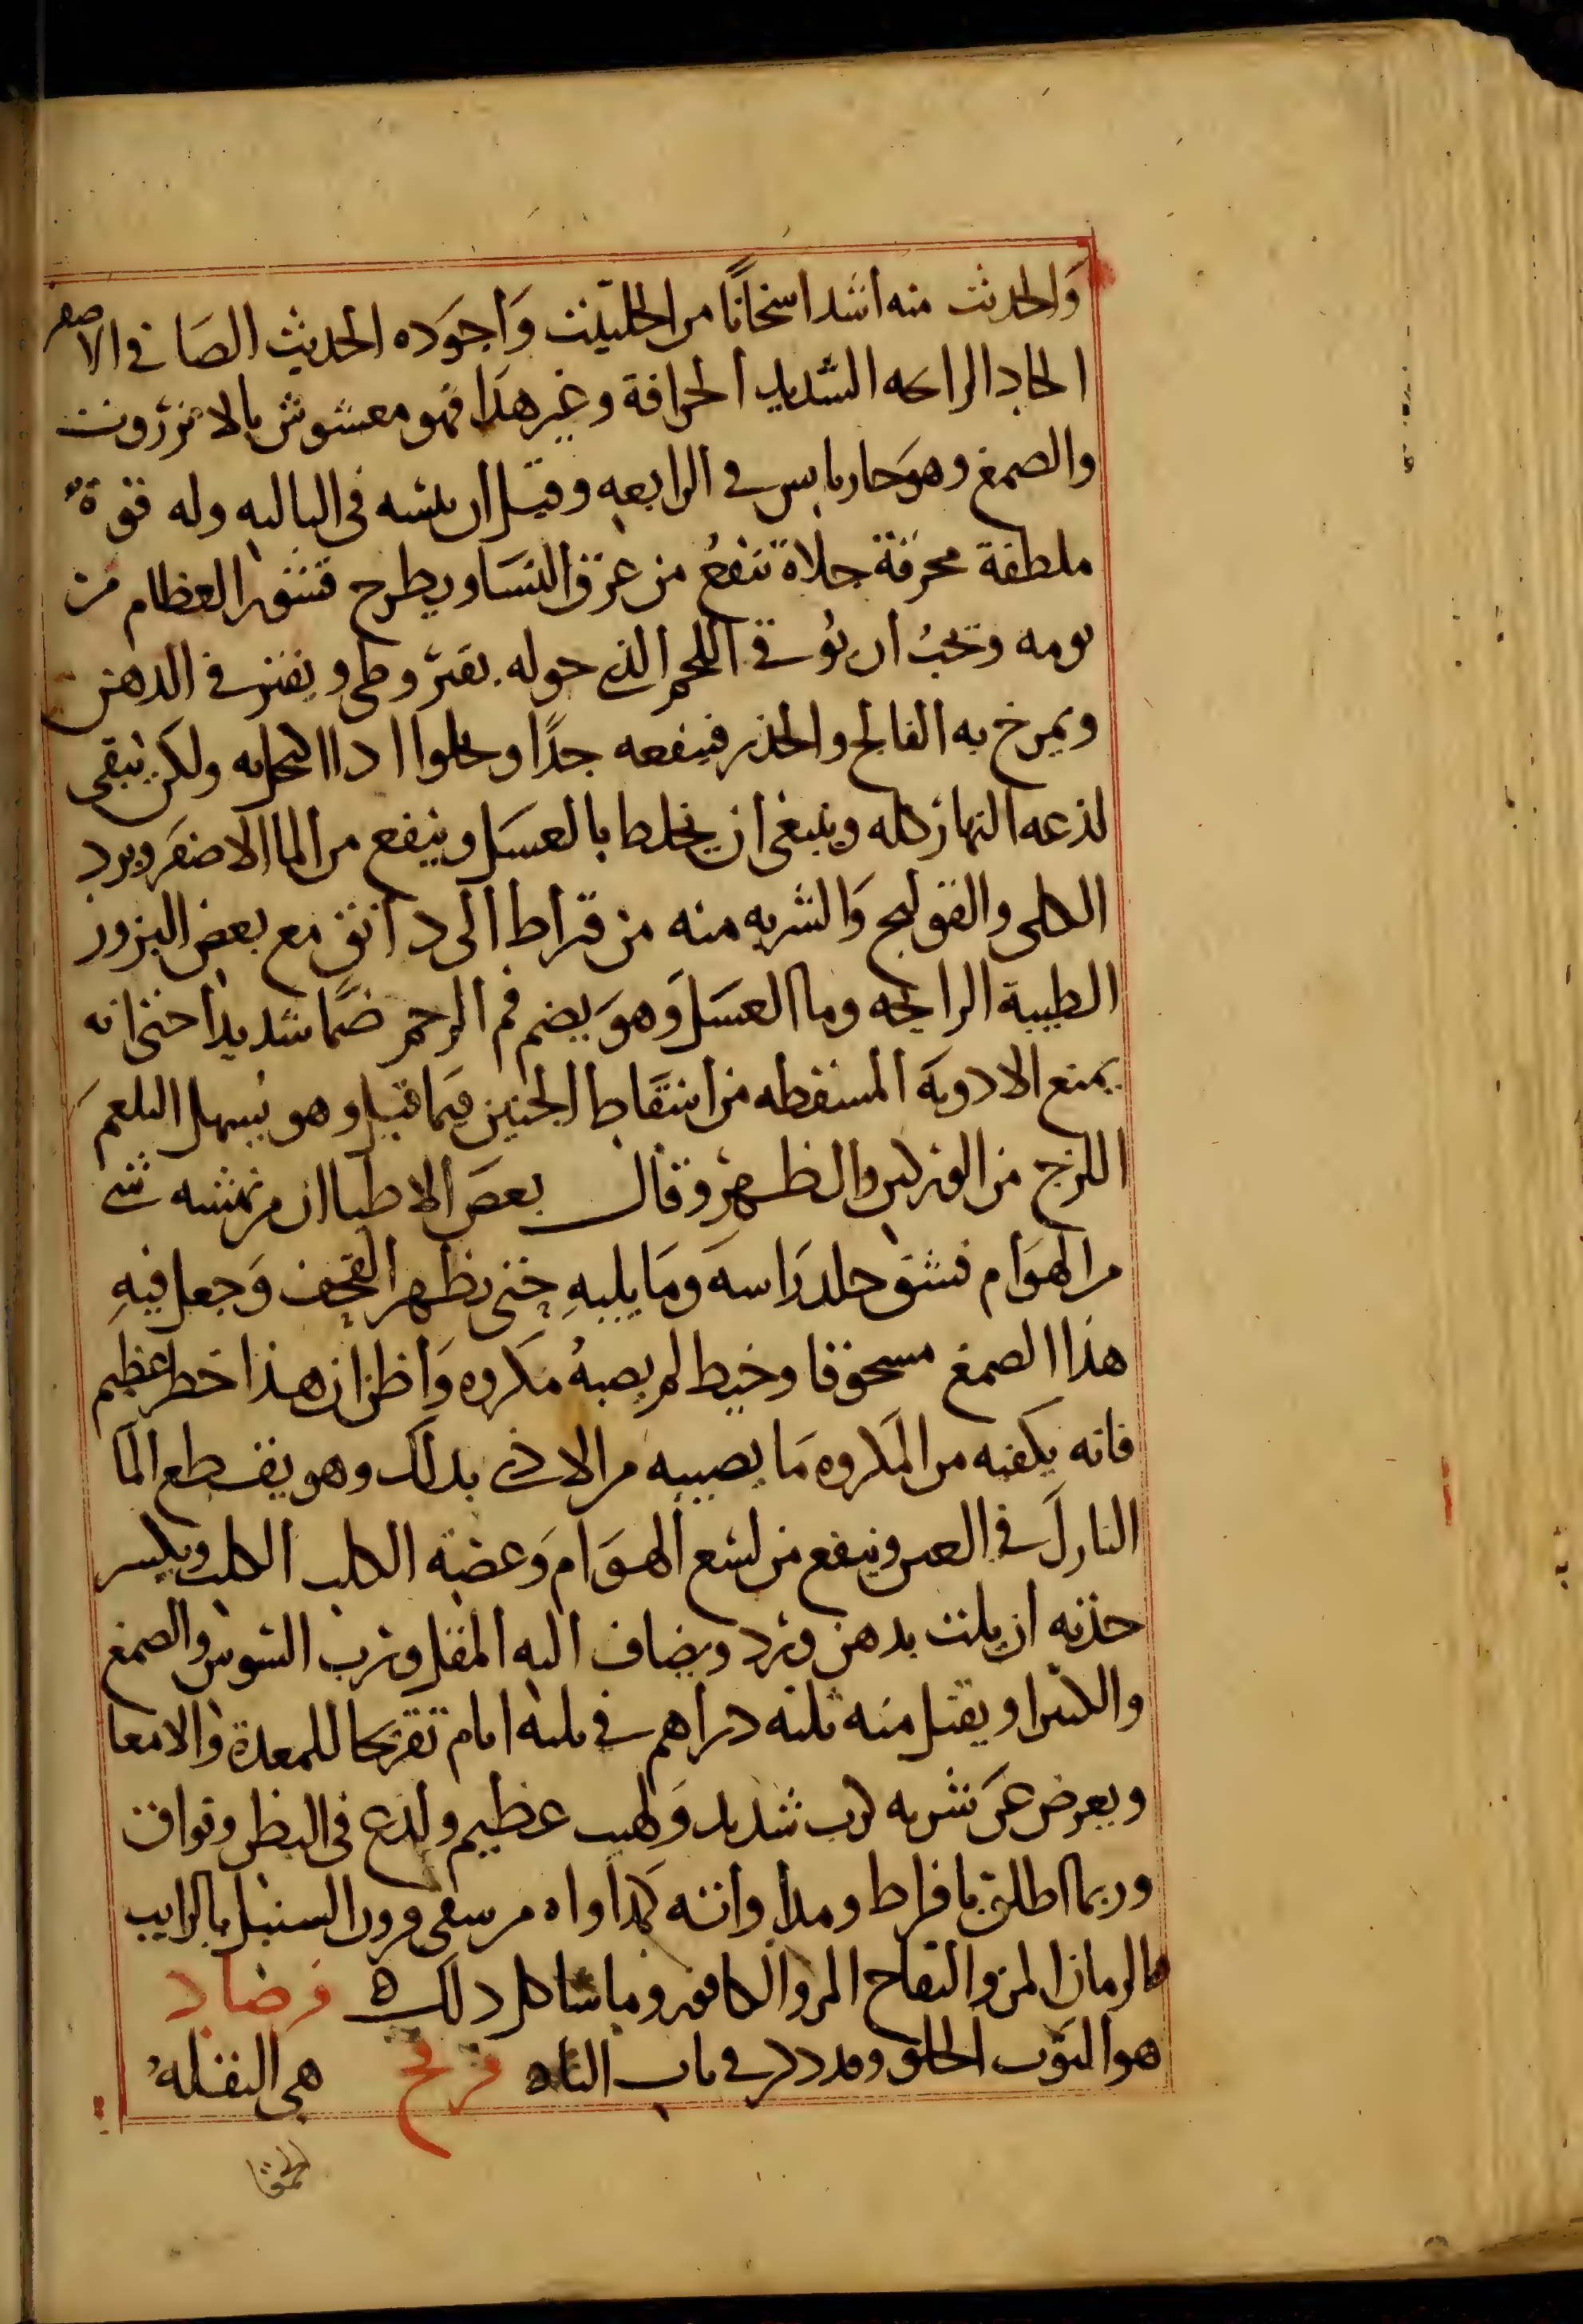 والحدث منه اشد اسخانًا من الحلتيت وَأجوَده الحديث الصَافي الاصفر
الحاد الرايحه الشديد الحرافة وغير هذا فهو مغشوش بالانزروت
والصمغ وهوَحار يابس في الرابعه وقيل ان يبسه في الثالثه وله قوةٌ
ملطفة محرقة جلاة تنفعُ من عرق النسَا ويطرح قشور العظام من
يومه وتجبُ ان يوُقي اللحم الذي حوله بقيروطي ويفتر في الدهن
ويمرخ به الفالج والخذر فينفعه جدًا ويخلوا اذا اكتحل به ولكن يبقى
لذعه النهار كله وينبغى ان يخلط بالعسَل وينفع من الما الاصفر وبرد
الكلى والقولنج وَالشربه منه من قيراط الى دانق مع بعض البزور
الطيبة الرايحه وما العسَل وَهوَ يضم فم الرحم ضمَّا شديدا حتى انه
يمنع الادويَه المسقطه من اسقَاط الجنين فيمَا قيل وهو يُسهل البلغمَ
اللزج من الوركين والظهر وقال بعضَ الاطبا ان من نهشه شي
من الهوَام فشق جلد رَاسهَ ومَا يليهِ حتى يظهر القحف وَجعل فيهِ
هذا الصمغ مسحوقا وخيط لم يصبهُ مكروه وَأظن ان هذا خطر عظيم
فانه يكفيه من المكروه مَا يصيبه من الاذي بذلك وهو يقطع المَا
النازلَ في العين وينفع من لسع الهوَام وَعضة الكلب الكلب ويكسر
حدته ان يلت بدهن ورد ويضاف اليه المقل ورب السوس والصمغ
والكثيرا ويقتل منه ثلثه دراهم في ثلثه ايام تقريحا للمعدة والامعا
ويعرض عَن شربه كرب شديد وَلهيب عظيم ولذع في البطن وفواق
وربما اطلق بافراط ومداواته كمداواه من سقي قرون السنبل بالرايب
والرمان المز والتفاح المر والكافور وما شاكل ذلك ه فرضاد
هو التوب الحلو وقد ذكر في باب التاه فرفح هي البقلهُ
الحمقا